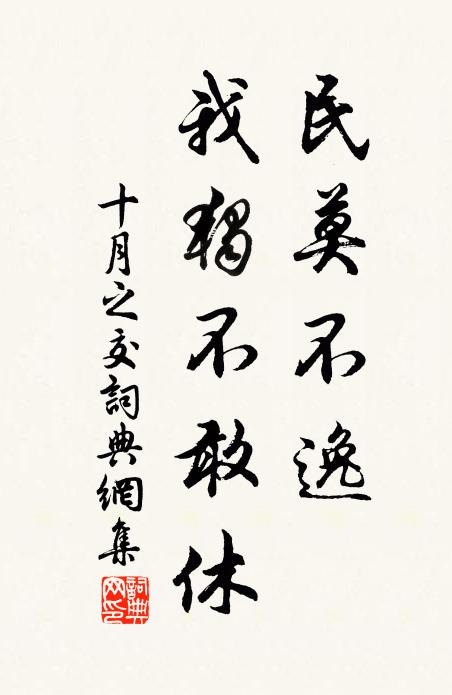 民莫不逸
我獨不敢休
十月之交詞典網集
詞典網印